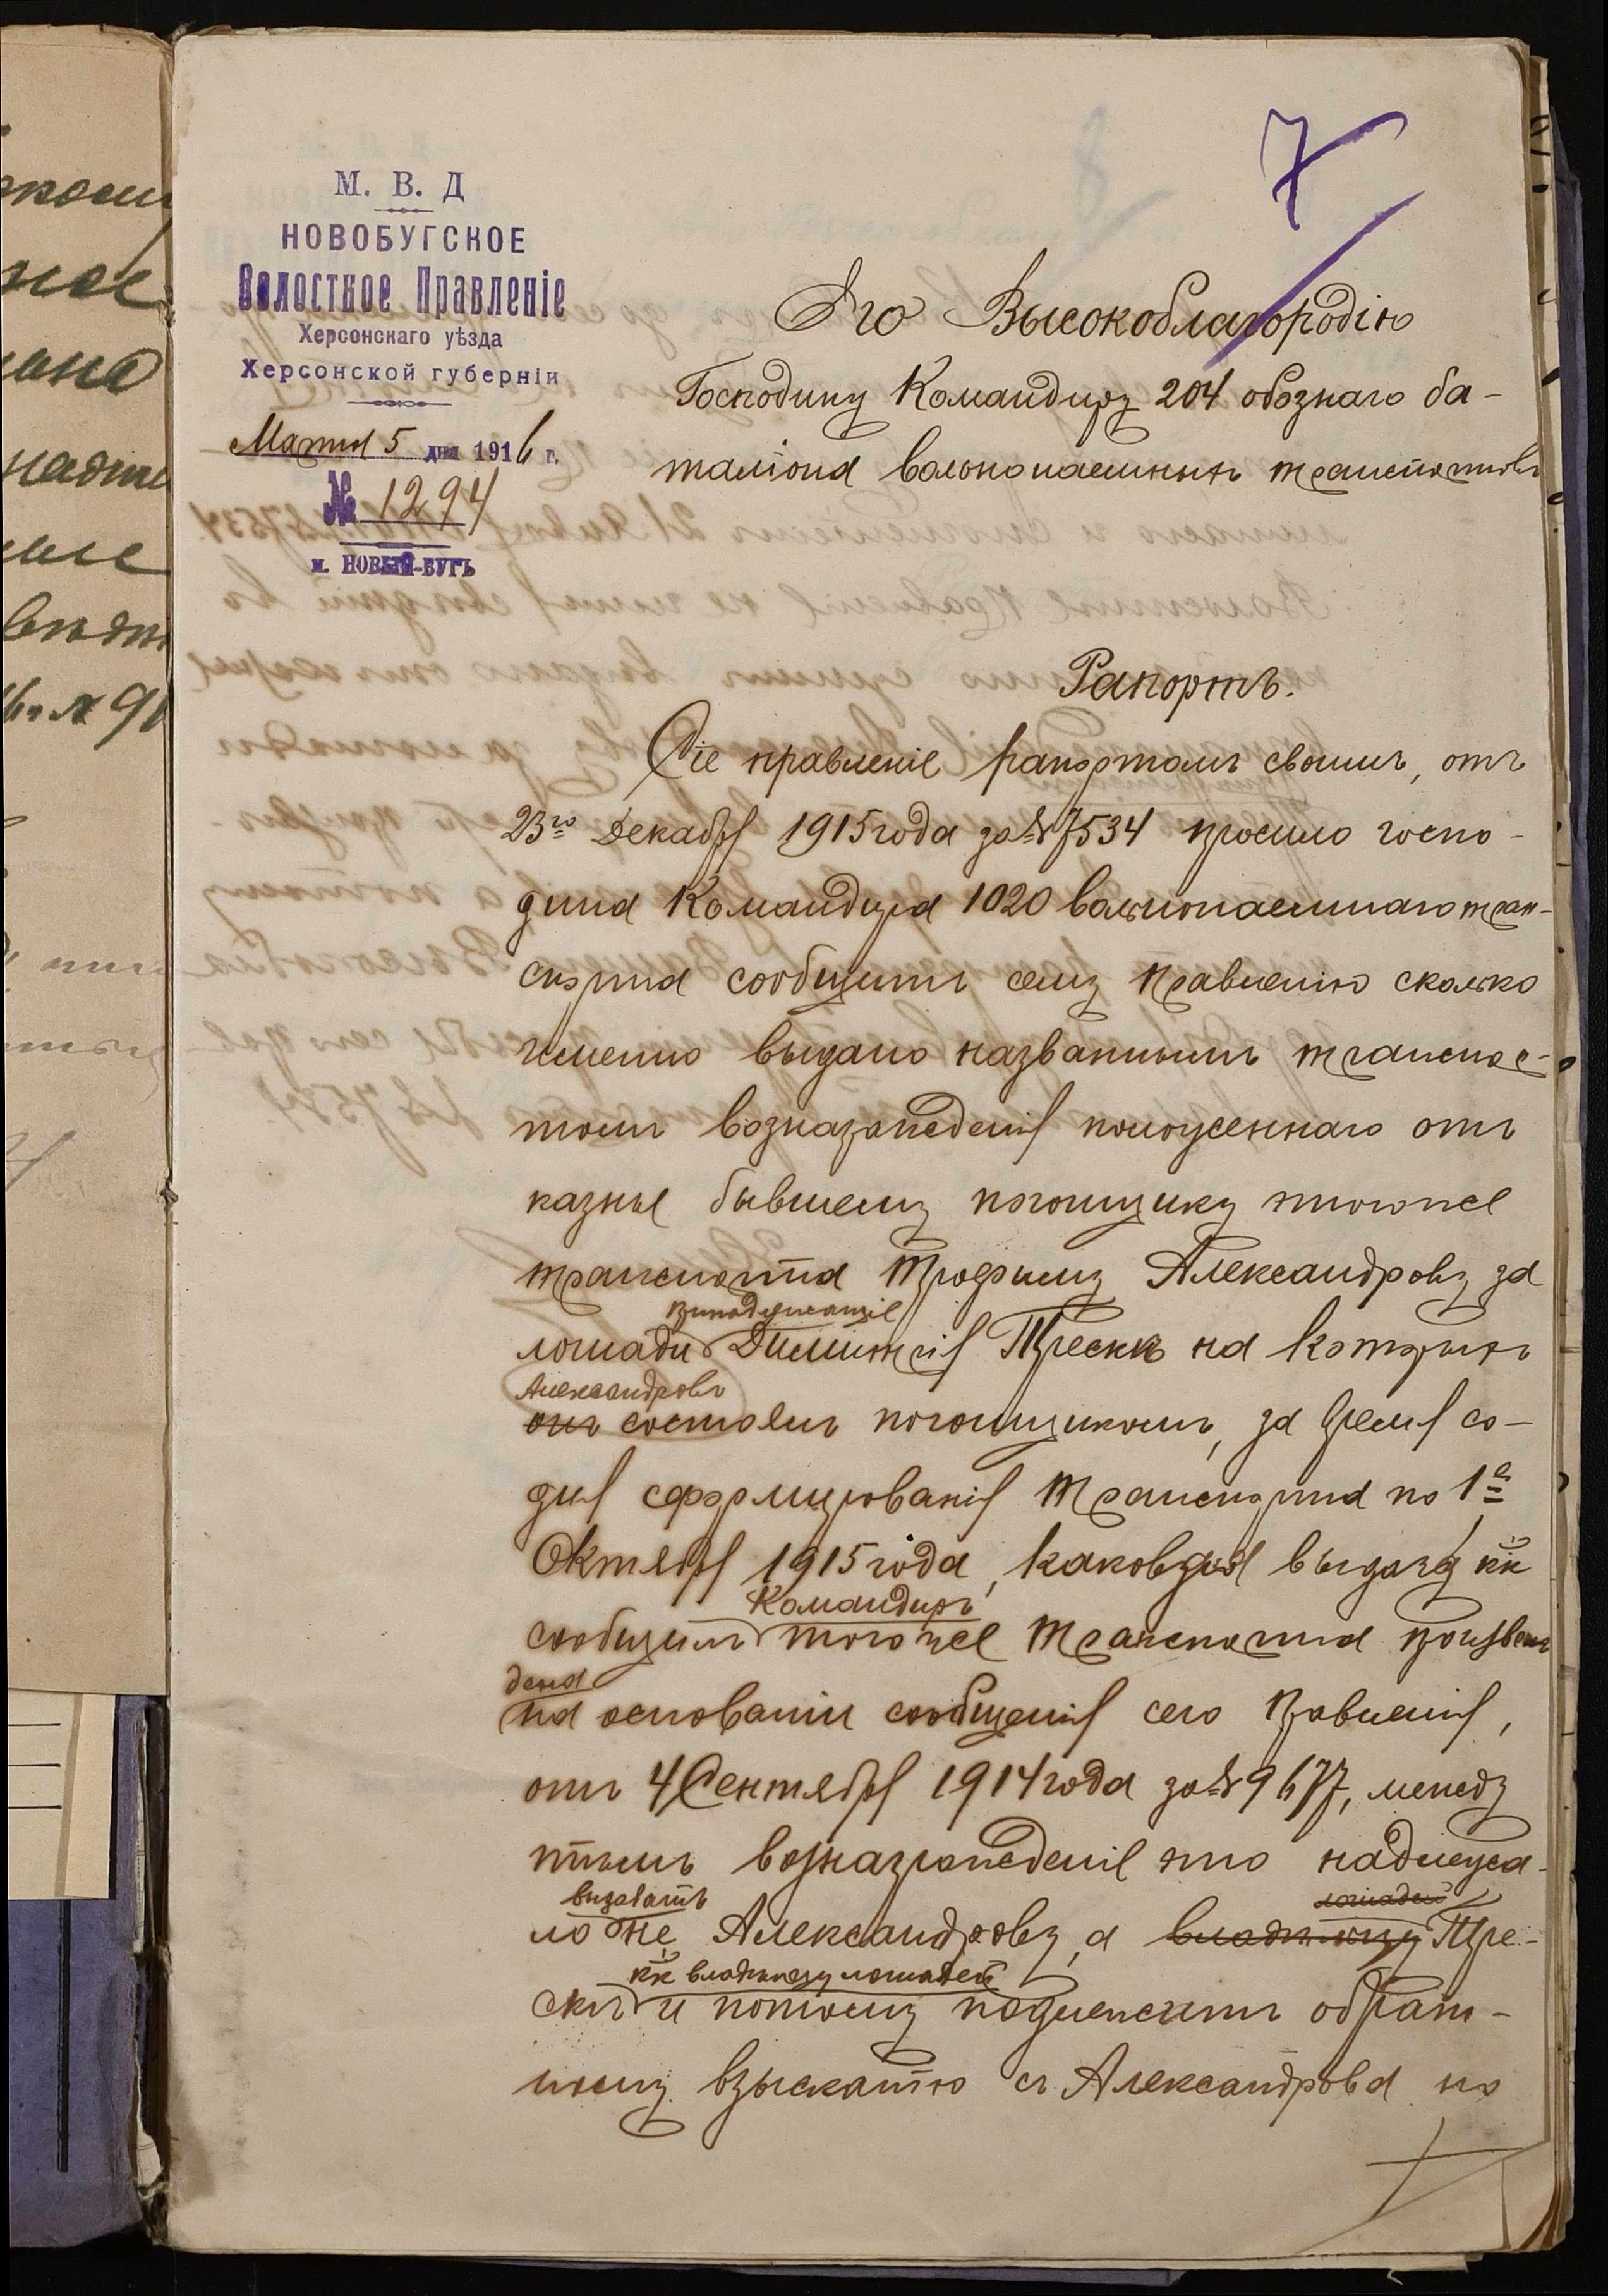 7
М. В. Д
НОВОБУГСКОЕ
Волостное Правленіе
Херсонскаго уѣзда
Херсонской губерніи
Марта 5 дня 1916 г.
№ 1294
м. НОВЫЙ-БУГЪ
Его Высокоблагородію
Господину Командиру 204 обознаго ба-
таліона вольнонаемныхъ транспортовъ
Рапортъ.
Сіе правленіе рапортомъ своимъ, отъ
23го Декабря 1915 года за № 7534 просило госпо-
дина Командира 1020 вольнонаемнаго тран-
спорта сообщить сему правленію сколько
именно выдано названнымъ транспор-
томъ вознагражденія положеннаго отъ
казны бывшему погонщику этого же
транспорта Трофиму Александрову за
лошади Дмитрія на которыхъ
Александровъ
онъ состоялъ погонщикомъ, за время со
дня сформированія транспорта по 1е
Октября 1915 года, каковая выдача кк
Командиръ
сообщилъ того же транспорта произве-
дена
на основаніи сообщенія сего Правленія,
отъ 4 Сентября 1914 года за № 9677, между
тѣмъ вознагражденіе это надлежа-
выдавать лошадей
ло не Александрову, а владѣльцу
кк владѣльцу лошадей
и потому подлежитъ обрат-
ному взысканію съ Александрова но